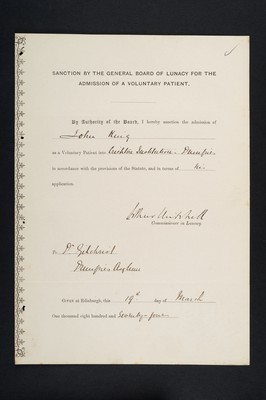 SANCTION BY THE GENERAL BOARD OF LUNACY FOR THE
ADMISSION OF A VOLUNTARY PATIENT.
By Authority of the Board, I hereby sanction the admission of
John King
as a Voluntary Patient into Crichton Institution - Dumfries
in accordance with the provisions of the Statute, and in terms of his
application.
Commissioner in Lunacy.
To Dr Gilchrist
Dumfries Asylum
Given at Edinburgh, this 19th day of March
One thousand eight hundred and seventy-four